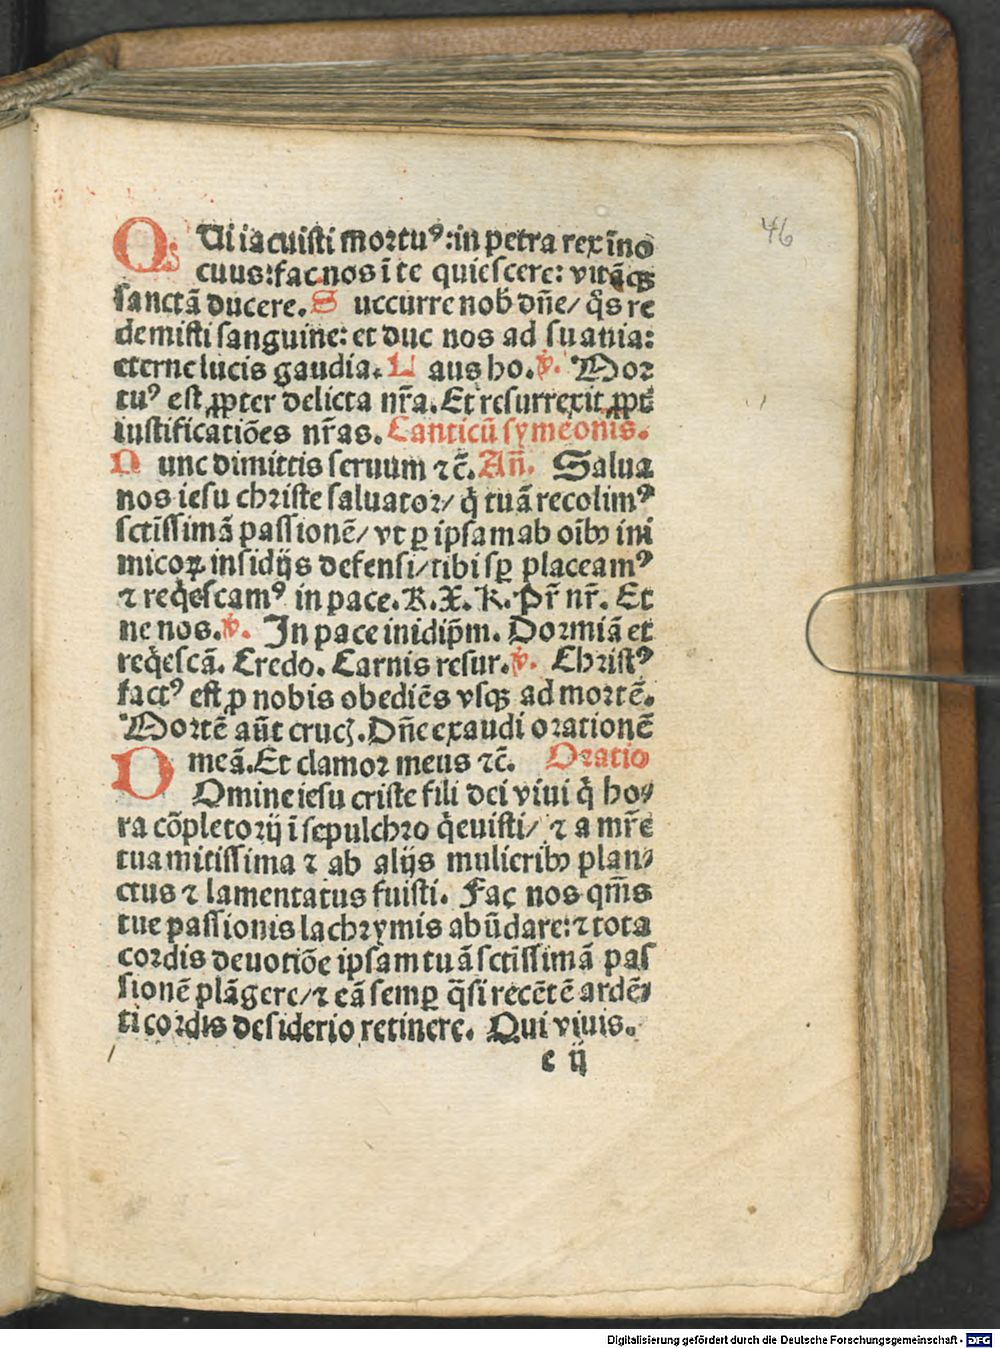 46
QUi iacuisti mortuꝰ:in petra rex ĩno
cuus:fac nos ĩ te quiescere: vitãqꝫ
sanctã ducere. S uccurre nob̃ dñe/ q̊s re
demisti sanguine: et duc nos ad suauia:
eterne lucis gaudia. L aus ho. ℣. Mor
tuꝰ est ꝓpter delicta nr̃a. Et resurrexit ꝓpt̃
iustificatiões nr̃as. Canticũ symeonis.
N unc dimittis seruum ⁊c̃. Añ. Salua
nos iesu christe saluator/ q̇ tuã recolimꝰ
sctĩssimã passionẽ/ vt ꝑ ipsam ab oĩbꝰ ini
micoꝝ insidijs defensi/ tibi sꝑ placeamꝰ
⁊ req̇escamꝰ in pace. K. X. K. Pr̃ nr̃. Et
ne nos. ℣. In pace inidip̃m. Dormiã et
req̇escã. Credo. Carnis resur. ℣. Christꝰ
factꝰ est ꝓ nobis obediẽs vsqꝫ ad mortẽ.
Mortẽ aũt crucꝭ. Dñe exaudi orationẽ
meã. Et clamor meus ⁊c̃. Oratio
DOmine iesu criste fili dei viui q̇ ho⸗
ra cõpletorij ĩ sepulchro q̇euisti/ ⁊ a mr̃e
tua mitissima ⁊ ab alijs mulieribꝰ plan⸗
ctus ⁊ lamentatus fuisti. Fac nos qm̃s
tue passionis lachrymis abũdare: ⁊ tota
cordis deuotiõe ipsam tuã sctĩssimã pas
sionẽ plãgere/ ⁊ eã semꝑ q̃si recẽtẽ ardẽ⸗
ti cordis desiderio retinere. Qui viuis.
e ij
Digitalisierung gefördert durch die Deutsche Forschungsgemeinschaft - DFG